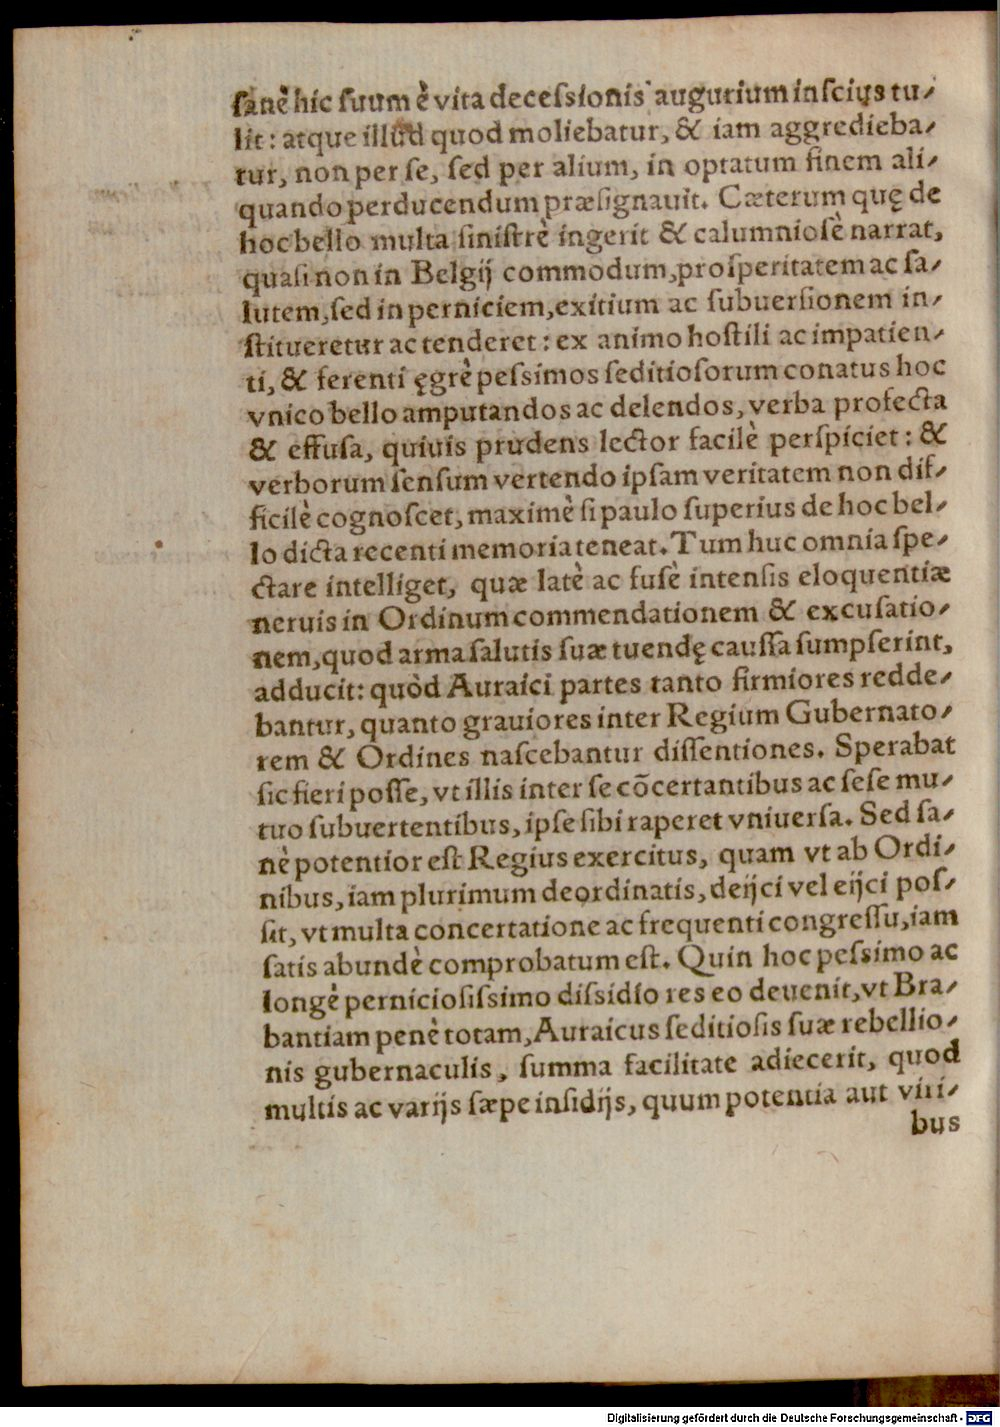 sanè hic suum è vita decessionis augurium inscius tu-
lit: atque illud quod moliebatur, & iam aggredieba-
tur, non per se, sed per alium, in optatum finem ali-
quando perducendum præsignauit. Cæterum quę de
hoc bello multa sinistrè ingerit & calumniosè narrat,
quasi non in Belgij commodum, prosperitatem ac sa-
lutem, sed in perniciem, exitium ac subuersionem in-
stitueretur ac tenderet: ex animo hostili ac impatien-
ti, & ferenti ęgrè pessimos seditiosorum conatus hoc
vnico bello amputandos ac delendos, verba profecta
& effusa, quiuis prudens lector facilè perspiciet: &
verborum sensum vertendo ipsam veritatem non dif-
ficilè cognoscet, maximè si paulo superius de hoc bel-
lo dicta recenti memoria teneat. Tum huc omnia spe-
ctare intelliget, quæ latè ac fusè intensis eloquentiæ
neruis in Ordinum commendationem & excusatio-
nem, quod arma salutis suæ tuendę caussa sumpserint,
adducit: quòd Auraici partes tanto firmiores redde-
bantur, quanto grauiores inter Regium Gubernato-
rem & Ordines nascebantur dissentiones. Sperabat
sic fieri posse, vt illis inter se cõcertantibus ac sese mu-
tuo subuertentibus, ipse sibi raperet vniuersa. Sed sa-
nè potentior est Regius exercitus, quam vt ab Ordi-
nibus, iam plurimum deordinatis, deijci vel eijci pos-
sit, vt multa concertatione ac frequenti congressu, iam
satis abundè comprobatum est. Quin hoc pessimo ac
longè perniciosissimo dissidio res eo deuenit, vt Bra-
bantiam penè totam, Auraicus seditiosis suæ rebellio-
nis gubernaculis, summa facilitate adiecerit, quod
multis ac varijs sæpe insidijs, quum potentia aut viri-
bus
Digitalisierung gefördert durch die Deutsche Forschungsgemeinschaft - DFG